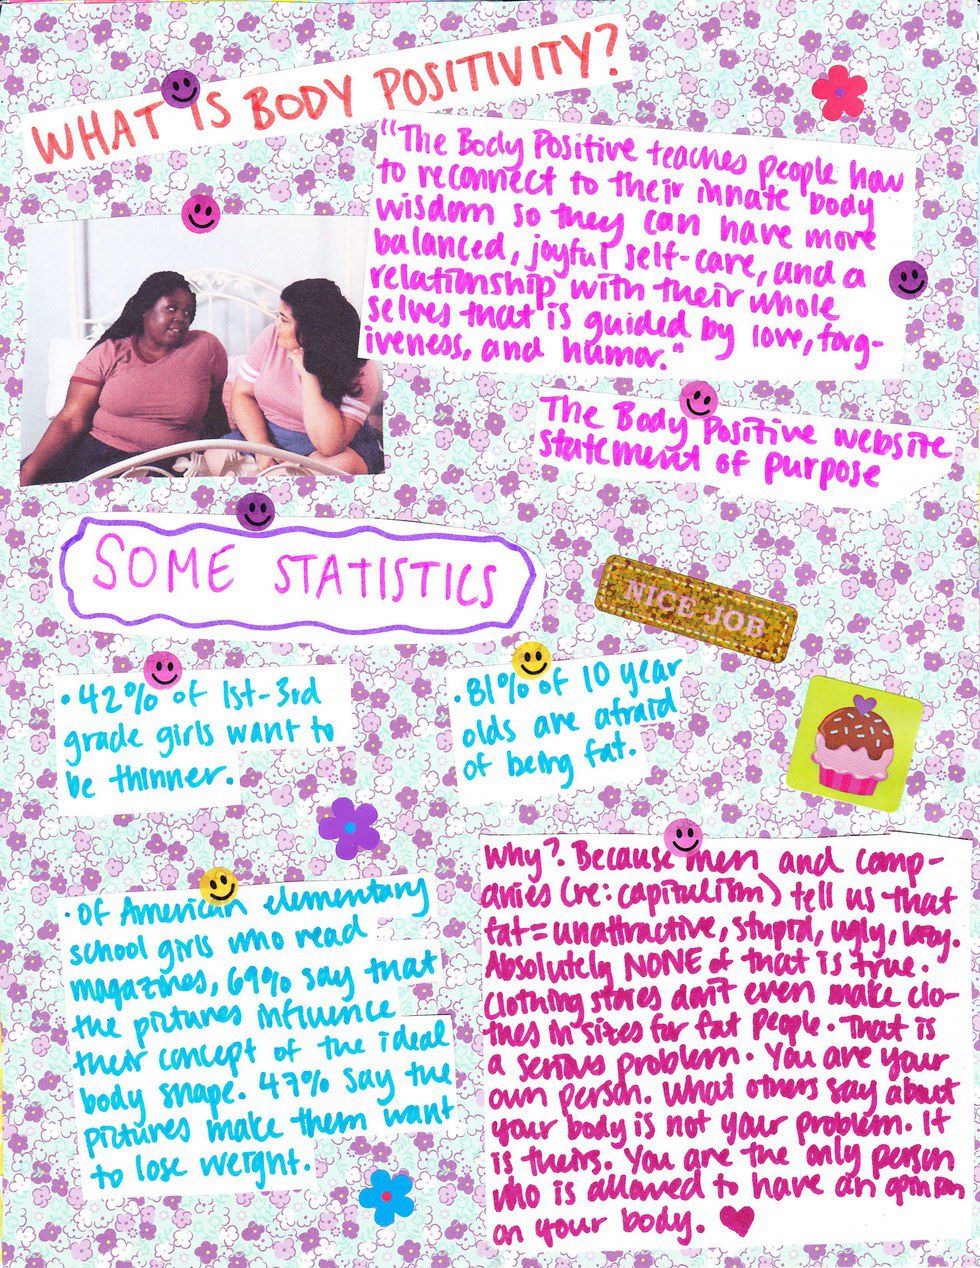 WHAT IS BODY POSITIVITY?
"The Body Positive teaches people how
to reconnect to their innate body
wisdom so they can have more
balanced, joyful self-care, and a
relationship with their whole
selves that is guided by love, forg-
iveness, and humor."
The Body Positive website
statement of purpose
SOME STATISTICS
NICE JOB
• 42% of 1st-3rd
grade girls want to
be thinner.
• 81% of 10 year
olds are afraid
of being fat.
• Of American elementary
school girls who read
magazines, 69% say that
the pictures influence
their concept of the ideal
body shape. 47% say the
pictures make them want
to lose weight.
Why? Because men and comp-
anies (re: capitalism) tell us that
fat = unattractive, stupid, ugly, lazy.
Absolutely NONE of that is true.
Clothing stores don't even make clo-
thes in sizes for fat people. That is
a serious problem. You are your
own person. What others say about
your body is not your problem. It
is theirs. You are the only person
who is allowed to have an opinion
on your body. ♥